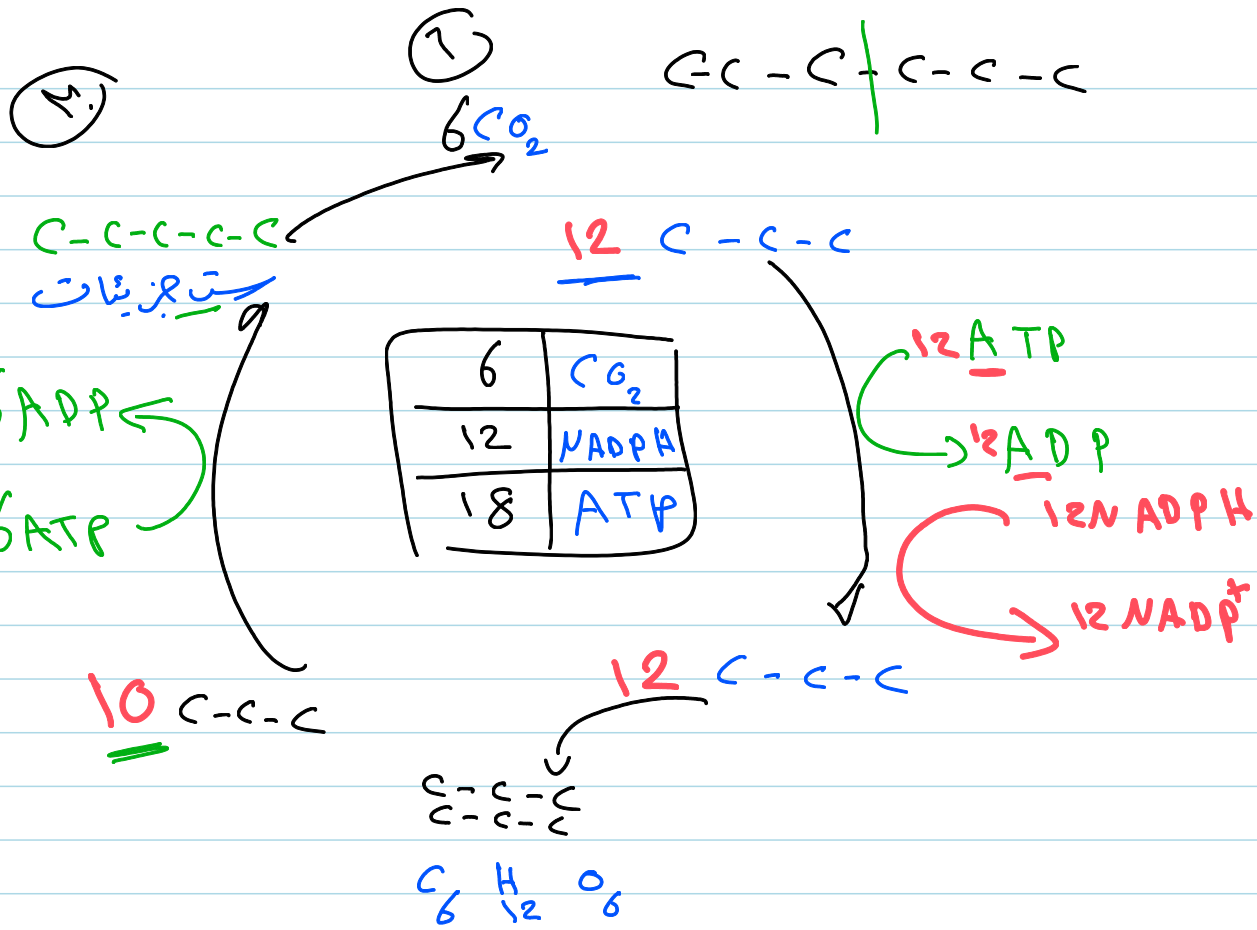 C-C-C-C-C-C
6CO2
C-C-C-C-C
ست جزيئات
12 C-C-C
6 CO2
12 NADPH
18 ATP
12ATP
12ADP
12NADPH
12NADP+
ADP
6ATP
10 C-C-C
12 C-C-C
C-C-C
C-C-C
C6H12O6